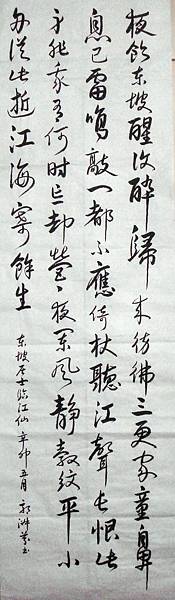 夜饮东坡醒復醉歸来彷彿三更家童鼻
息已雷鳴敲门都不應倚杖聽江聲长恨此
身非我有何时忘却營營夜阑风静縠纹平小
舟從此逝江海寄餘生
东坡居士临江仙 辛卯五月 书